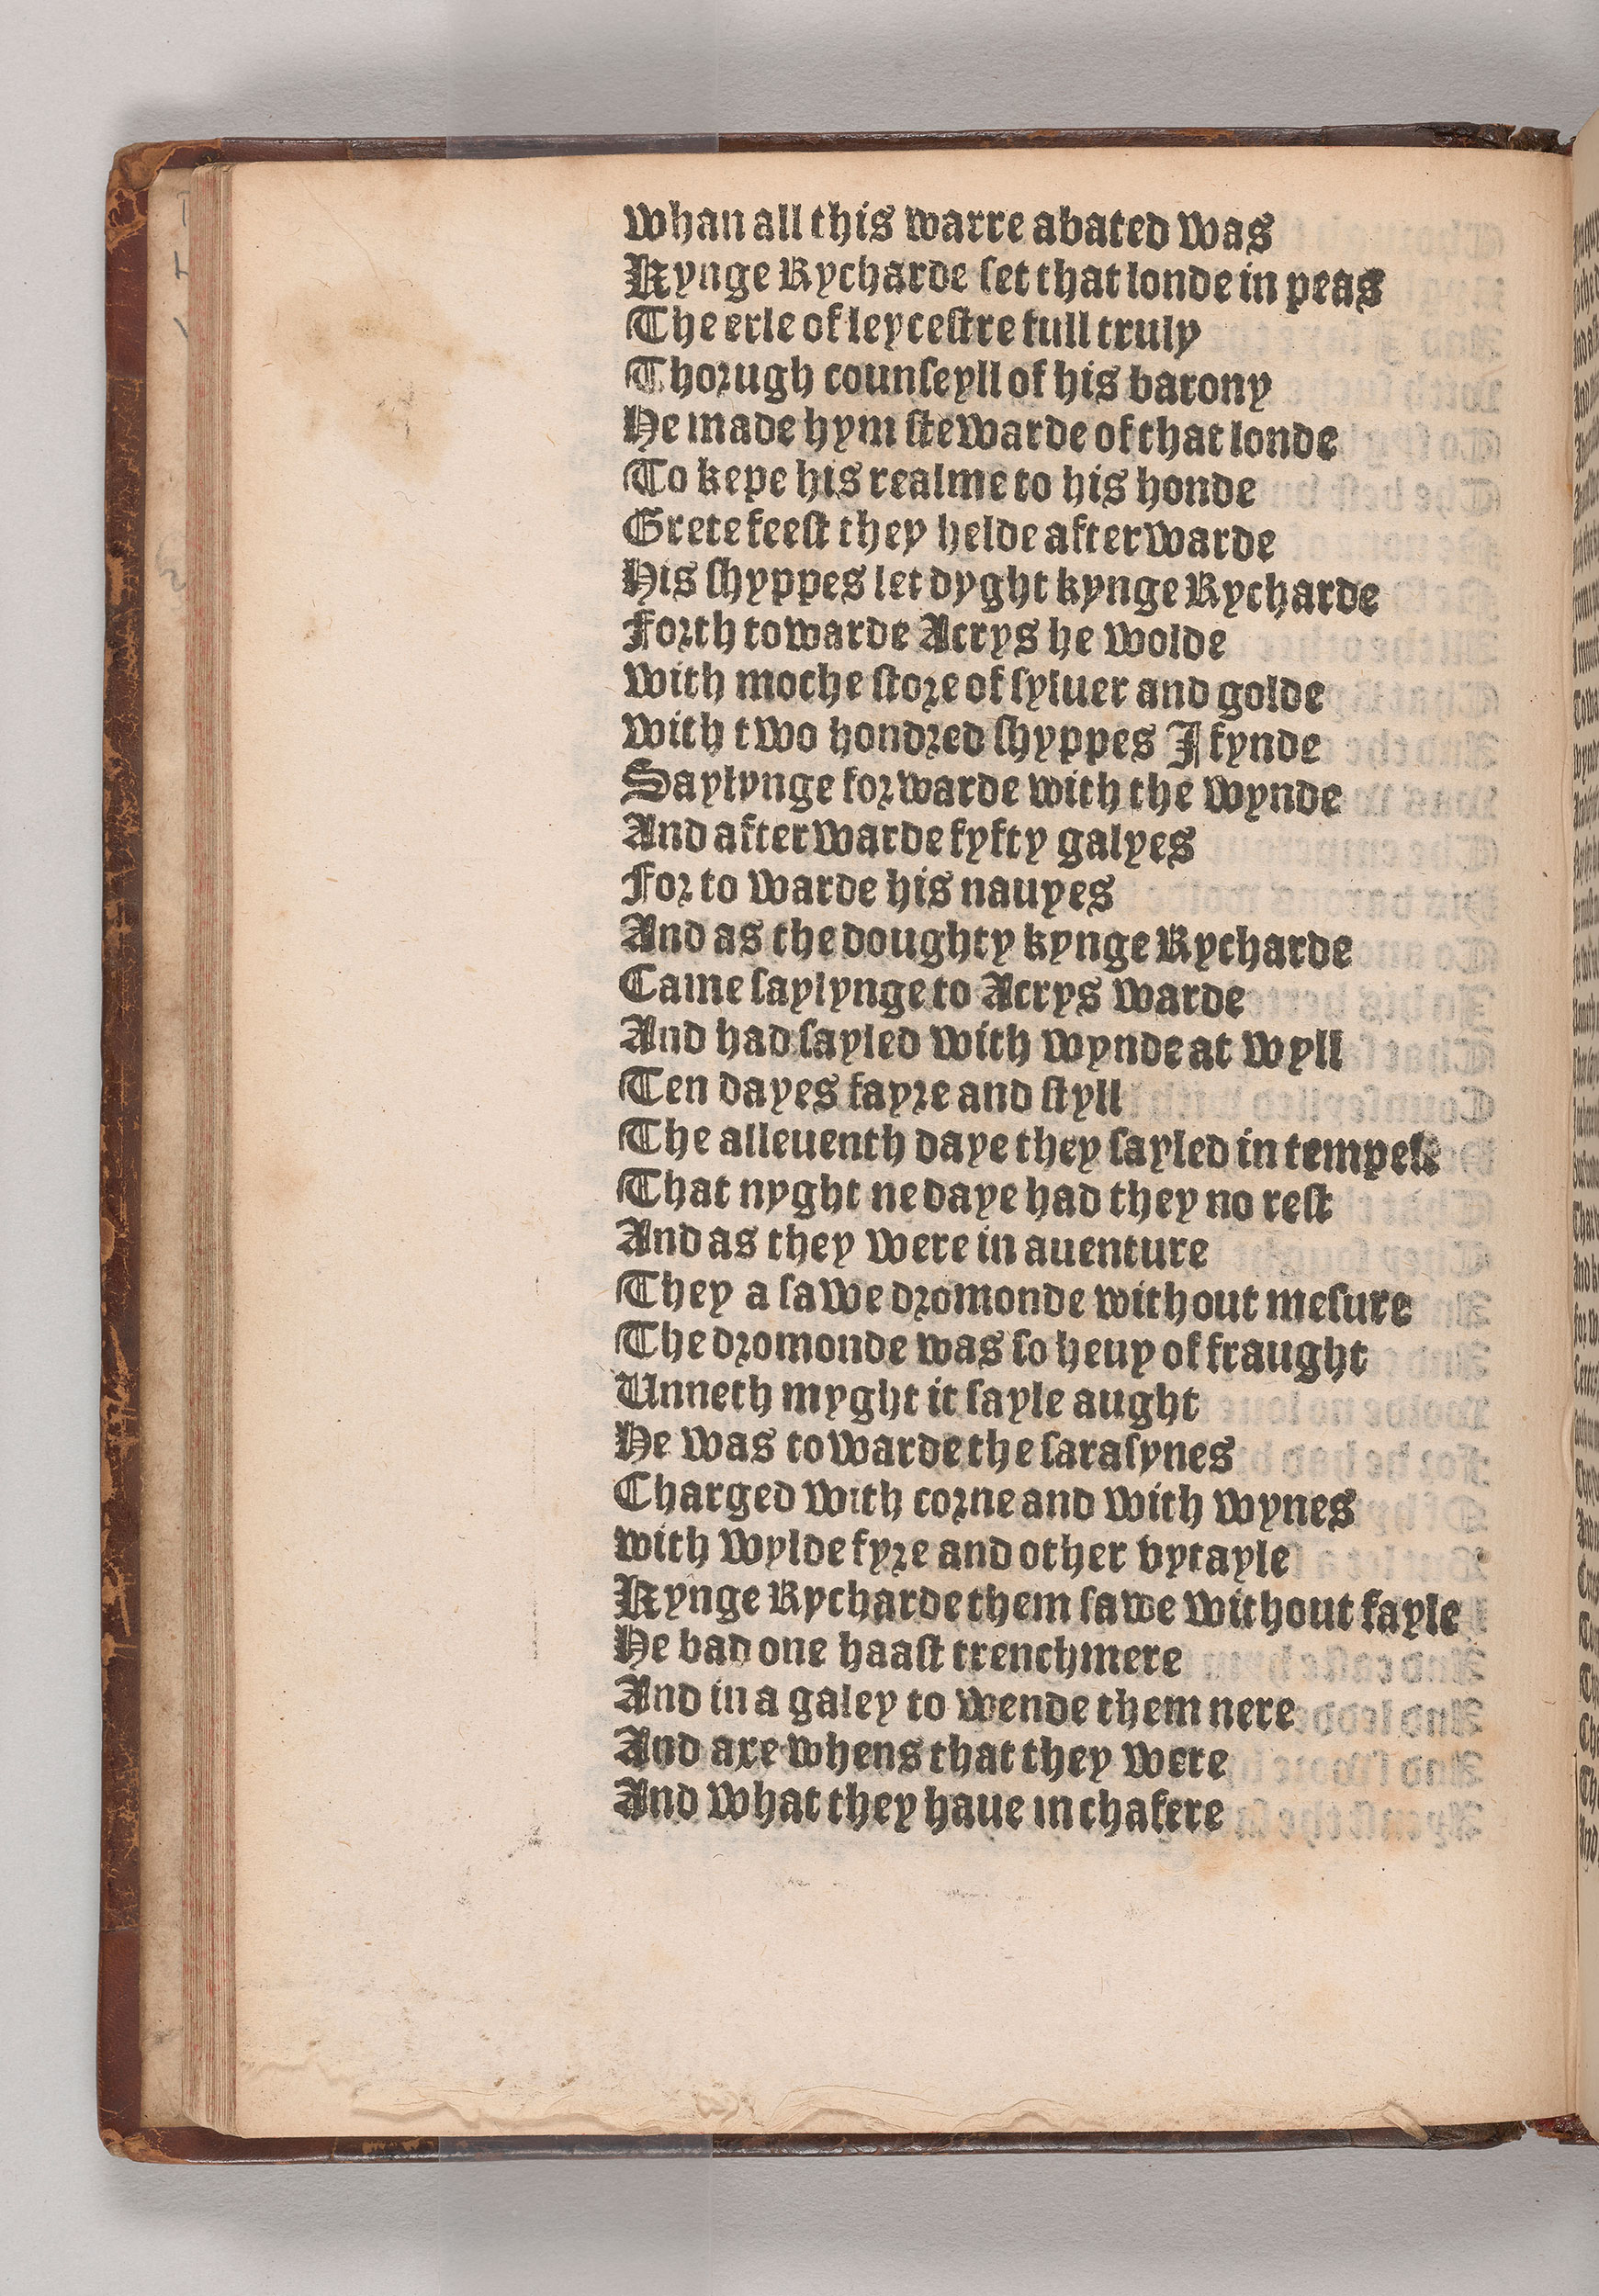 Whan all this warre abated was
Kynge Rycharde set that londe in peas
The erle of leycestre full truly
Thorugh counseyll of his barony
He made hym stewarde of that londe
To kepe his realme to his honde
Grete feest they helde afterwarde
His shyppes let dyght kynge Rycharde
Forth towarde Acrys he wolde
With moche store of syluer and golde
With two hondred shyppes I fynde
Saylynge forwarde with the wynde
And afterwarde fyfty galyes
For to warde his nauyes
And as the doughty kynge Rycharde
Came saylynge to Acrys warde
And had sayled with wynde at wyll
Ten dayes fayre and styll
The alleuenth daye they sayled in tempest
That nyght ne daye had they no rest
And as they were in auenture
They a sawe dromonde without mesure
The dromonde was so heuy of fraught
Unneth myght it sayle aught
He was towarde the sarasynes
Charged with corne and with wynes
With wylde fyre and other vytayle
Kynge Rycharde them sawe without fayle
He bad one haast trenchmere
And in a galey to wende them nere
And axe whens that they were
And what they haue in chafere